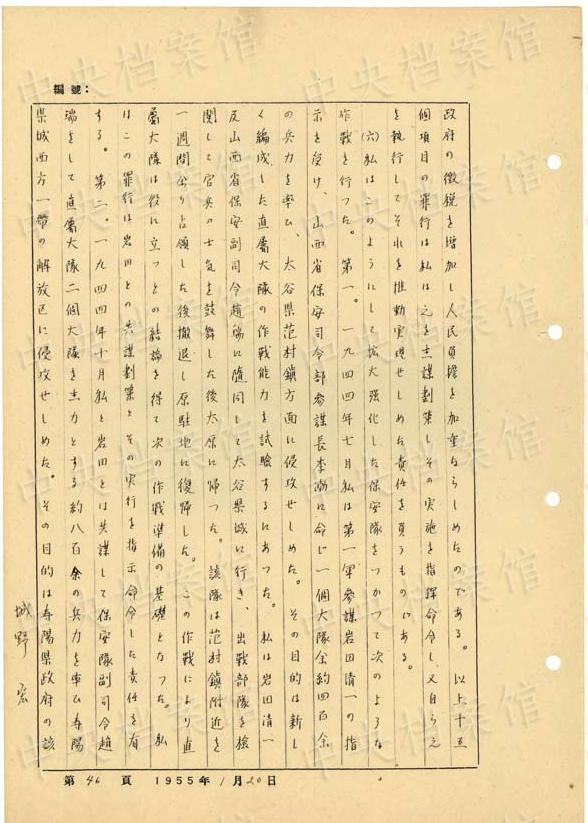 編號：
政府の徴税を増加し人民負擔を加重ならしめたのである。以上十五
個項目の罪行は私は之を共謀劃策しその実施を指揮命令し、又自ら之
を執行してそれを推動実現せしめた責任を負うものである。
(六)私はこのようにして拡大強化した保安隊をつかつて次のような
作戦を行つた。第一。一九四四年七月私は第一軍参謀岩田清一の指
示を受け、山西省保安司令部参謀長李渤に命じ一個大隊余約四百余
の兵力を率ひ、太谷県范村鎮方面に侵攻せしめた。その目的は新し
く編成した直屬大隊の作戦能力を試驗するにあつた。私は岩田清一
及山西省保安副司令趙瑞に随同して太谷県城に行き、出戦部隊を檢
閲して官兵の士気を鼓舞した後太原に帰つた。該隊は范村鎮附近を
一週間余り占領した後撤退し原駐地に復帰した。この作戦により直
屬大隊は役に立つとの結論を得て次の作戦準備の基礎となつた。私
はこの罪行は岩田との共謀劃策とその実行を指示命令した責任を有
する。第二。一九四四年十月私と岩田とは共謀して保安隊副司令趙
瑞をして直屬大隊二個大隊を主力とする約八百余の兵力を率ひ寿陽
県城西方一帶の解放区に侵攻せしめた。その目的は寿陽県政府の該
城野宏
第46頁 1955年1月20日
中央档案馆